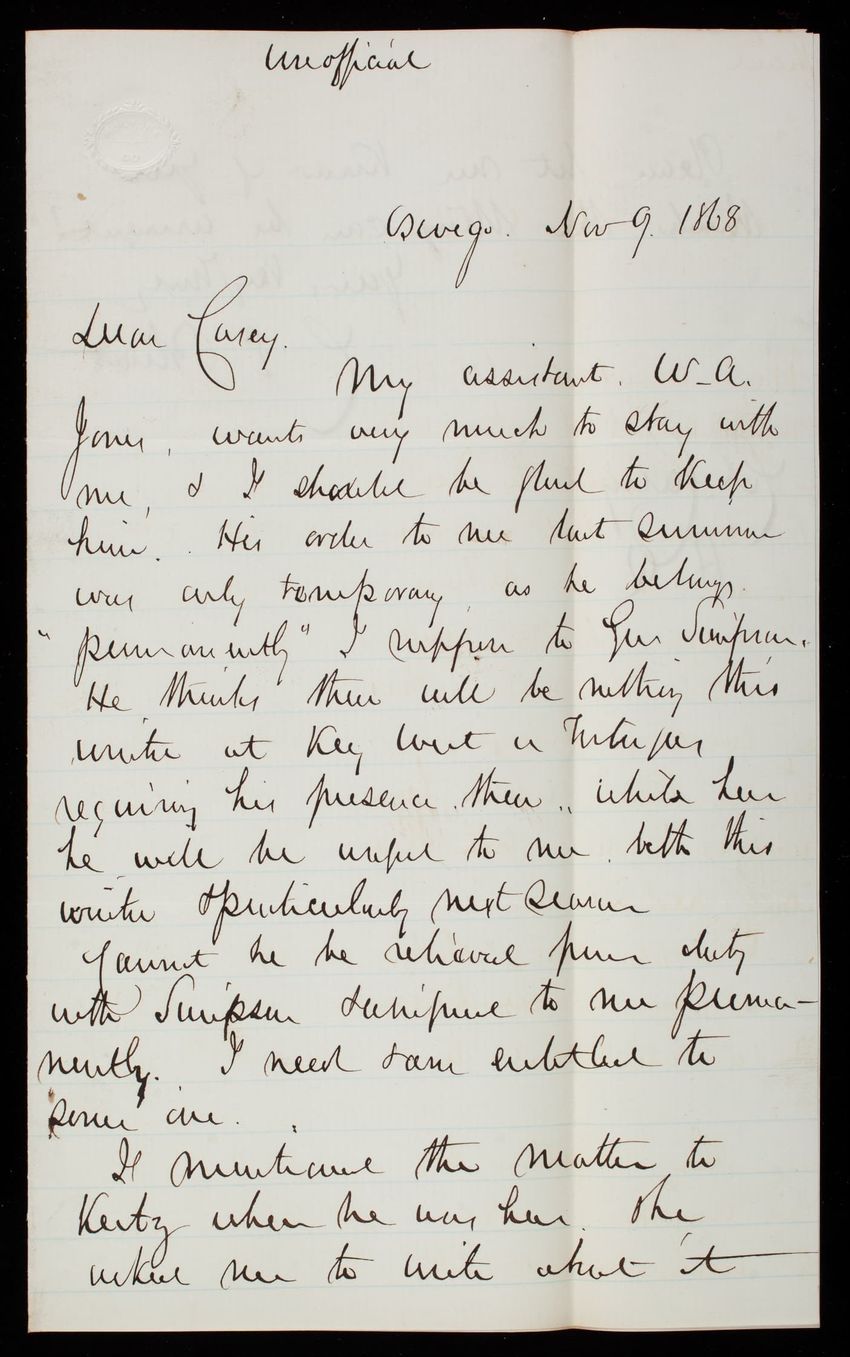 Unofficial
Oswego. Nov 9. 1868
Dear Casey.
My assistant. W. A.
Jones, wants very much to stay with
me, & I should be glad to keep
him. His order to me last summer
was only temporary, as he belongs
"permanently" I suppose to Gen Simpson.
He thinks there will be nothing this
winter at Key West or Tortugas
requiring his presence there, while here
he will be useful to me. both this
winter & particularly next season
Cannot he be relieved from duty
with Simpson & assigned to me perma-
nently. I need & am entitled to
some one.
I mentioned the matter to
Kurtz when he was here. & he
asked me to write about it